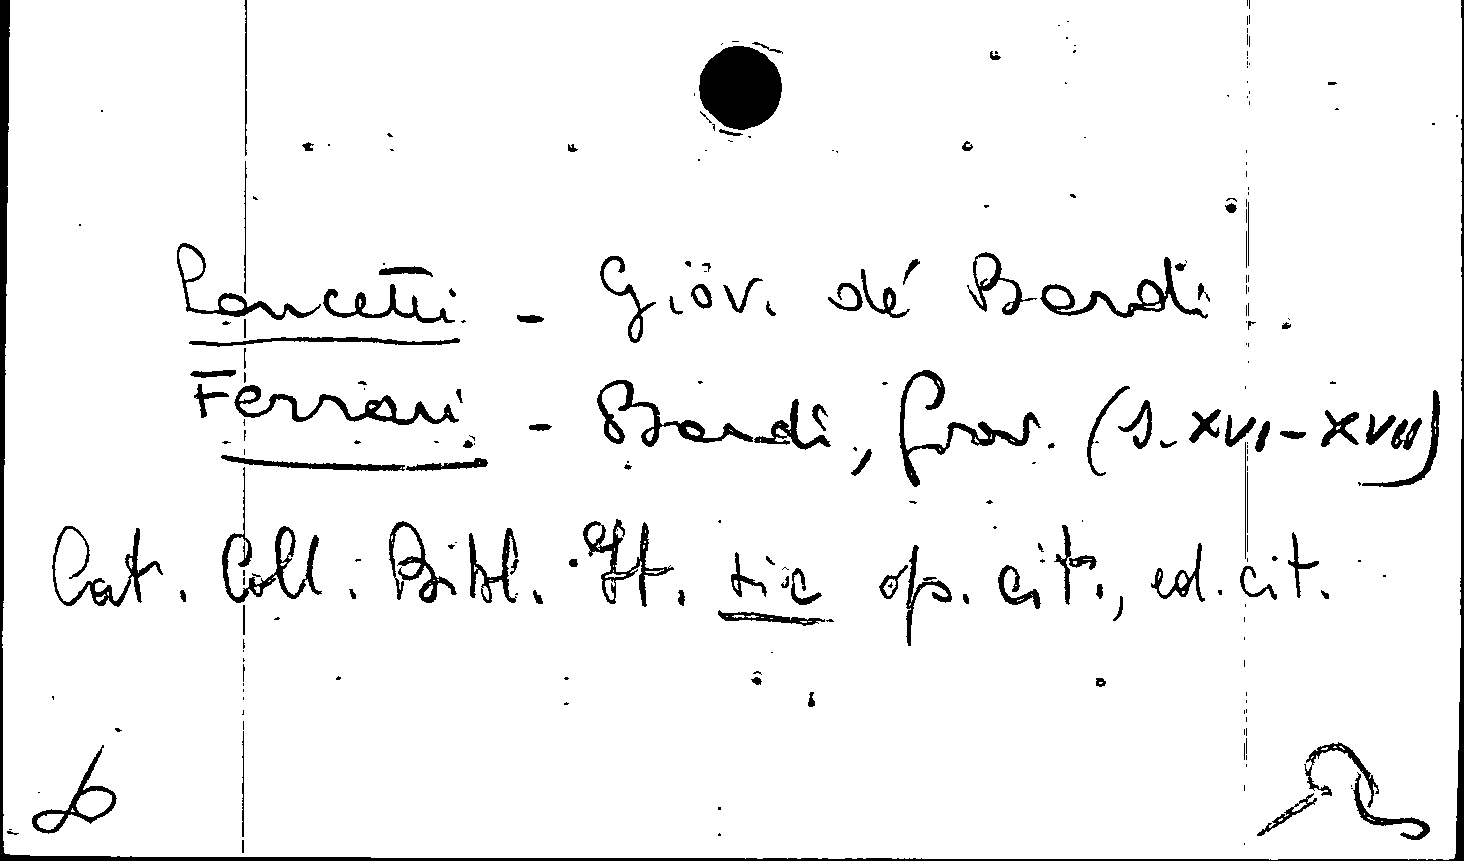 Lancetti - Giov. dé Bardi.
Ferrari - Bardi, Giov. (s. XVI-XVII)
Cat. Coll. Bibl. It. sic op. cit., ed. cit.